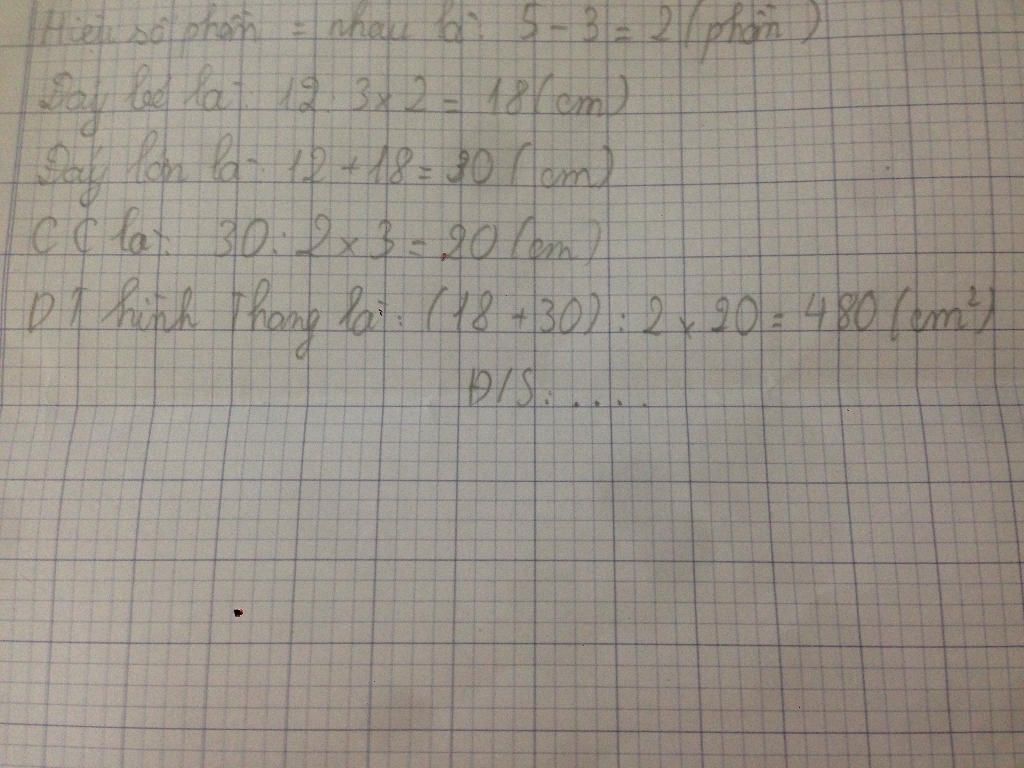 Hiệu số phần = nhau là: 5 - 3 = 2 (phần)
Đáy bé là: 12 : 3 x 2 = 18 (cm)
Đáy lớn là: 12 + 18 = 30 (cm)
CC là: 30 : 2 x 3 = 20 (cm)
DT hình thang là: (18 + 30) : 2 x 20 = 480 (cm²)
Đ/S: ....